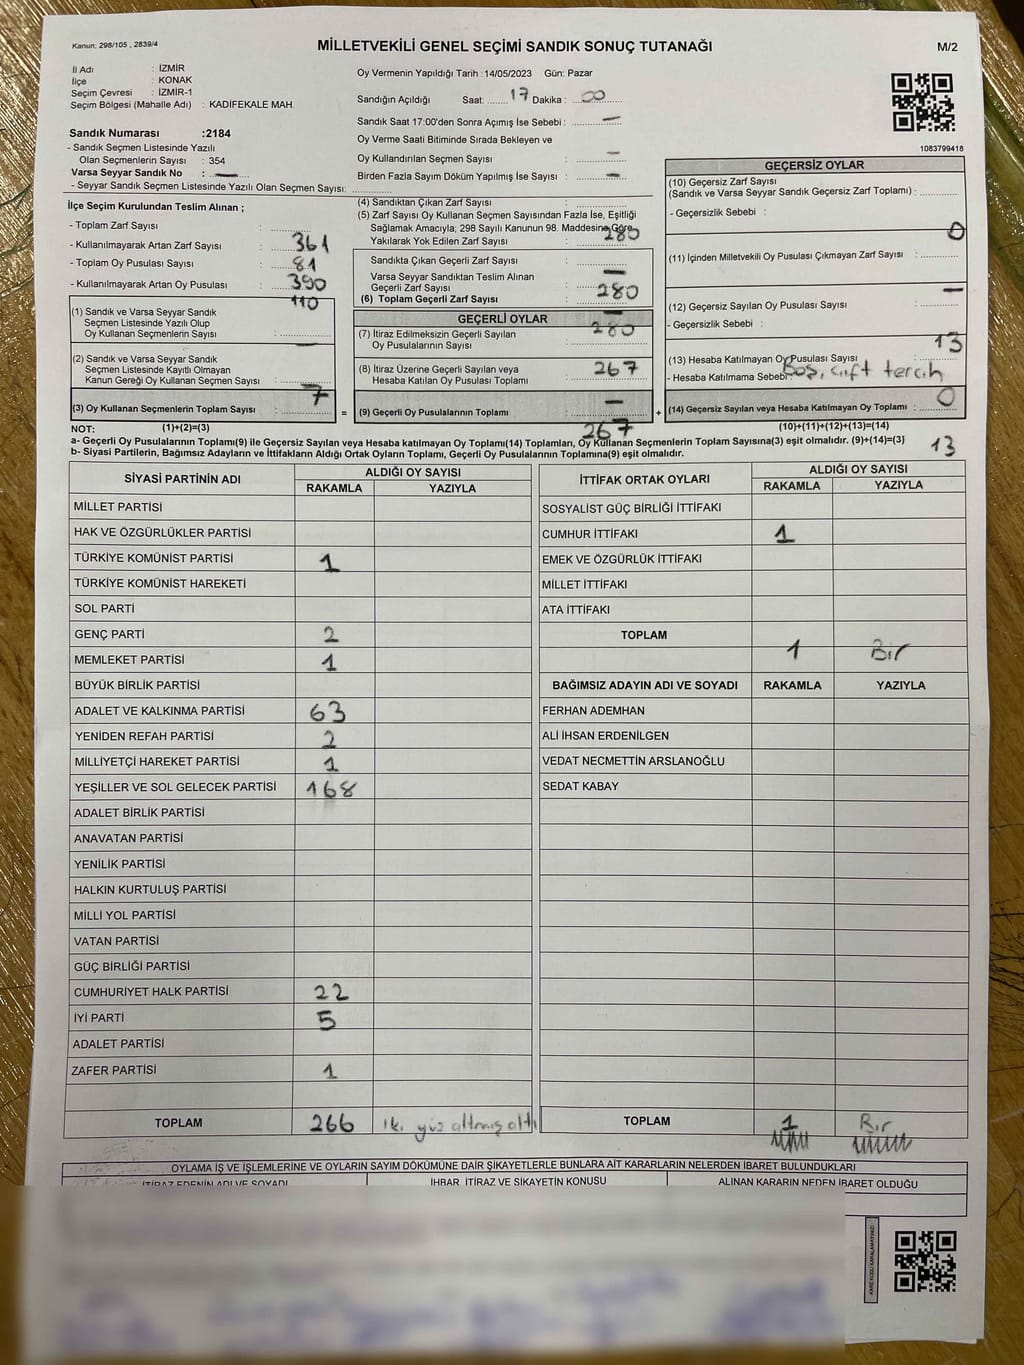 Kanun: 298/105 , 2839/4
MİLLETVEKİLİ GENEL SEÇİMİ SANDIK SONUÇ TUTANAĞI
M/2
İl Adı : İZMİR
İlçe : KONAK
Seçim Çevresi : İZMİR-1
Seçim Bölgesi (Mahalle Adı) : KADİFEKALE MAH.
Sandık Numarası :2184
- Sandık Seçmen Listesinde Yazılı
Olan Seçmenlerin Sayısı : 354
Varsa Seyyar Sandık No : —
- Seyyar Sandık Seçmen Listesinde Yazılı Olan Seçmen Sayısı:
Oy Vermenin Yapıldığı Tarih :14/05/2023 Gün: Pazar
Sandığın Açıldığı Saat: 17 Dakika : 00
Sandık Saat 17:00'den Sonra Açımış İse Sebebi : —
Oy Verme Saati Bitiminde Sırada Bekleyen ve
Oy Kullandırılan Seçmen Sayısı : —
Birden Fazla Sayım Döküm Yapılmış İse Sayısı : —
1083799418
İlçe Seçim Kurulundan Teslim Alınan ;
- Toplam Zarf Sayısı :
361
- Kullanılmayarak Artan Zarf Sayısı :
81
- Toplam Oy Pusulası Sayısı :
390
- Kullanılmayarak Artan Oy Pusulası :
110
(1) Sandık ve Varsa Seyyar Sandık
Seçmen Listesinde Yazılı Olup
Oy Kullanan Seçmenlerin Sayısı :
—
(2) Sandık ve Varsa Seyyar Sandık
Seçmen Listesinde Kayıtlı Olmayan
Kanun Gereği Oy Kullanan Seçmen Sayısı :
7
(3) Oy Kullanan Seçmenlerin Toplam Sayısı :
(4) Sandıktan Çıkan Zarf Sayısı :
(5) Zarf Sayısı Oy Kullanan Seçmen Sayısından Fazla İse, Eşitliği
Sağlamak Amacıyla; 298 Sayılı Kanunun 98. Maddesine Göre
Yakılarak Yok Edilen Zarf Sayısı :
280
Sandıkta Çıkan Geçerli Zarf Sayısı :
—
Varsa Seyyar Sandıktan Teslim Alınan
Geçerli Zarf Sayısı :
280
(6) Toplam Geçerli Zarf Sayısı :
—
GEÇERLİ OYLAR
280
(7) İtiraz Edilmeksizin Geçerli Sayılan
Oy Pusulalarının Sayısı :
267
(8) İtiraz Üzerine Geçerli Sayılan veya
Hesaba Katılan Oy Pusulası Toplamı :
—
= (9) Geçerli Oy Pusulalarının Toplamı : +
267
GEÇERSİZ OYLAR
(10) Geçersiz Zarf Sayısı
(Sandık ve Varsa Seyyar Sandık Geçersiz Zarf Toplamı) :
- Geçersizlik Sebebi :
0
(11) İçinden Milletvekili Oy Pusulası Çıkmayan Zarf Sayısı :
—
(12) Geçersiz Sayılan Oy Pusulası Sayısı :
- Geçersizlik Sebebi :
13
(13) Hesaba Katılmayan Oy Pusulası Sayısı :
- Hesaba Katılmama Sebebi: Boş, çift tercih
0
(14) Geçersiz Sayılan veya Hesaba Katılmayan Oy Toplamı :
13
NOT: (1)+(2)=(3)
(10)+(11)+(12)+(13)=(14)
a- Geçerli Oy Pusulalarının Toplamı(9) ile Geçersiz Sayılan veya Hesaba katılmayan Oy Toplamı(14) Toplamları, Oy Kullanan Seçmenlerin Toplam Sayısına(3) eşit olmalıdır. (9)+(14)=(3)
b- Siyasi Partilerin, Bağımsız Adayların ve İttifakların Aldığı Ortak Oyların Toplamı, Geçerli Oy Pusulalarının Toplamına(9) eşit olmalıdır.
SİYASİ PARTİNİN ADI ALDIĞI OY SAYISI
RAKAMLA YAZIYLA
MİLLET PARTİSİ
HAK VE ÖZGÜRLÜKLER PARTİSİ
TÜRKİYE KOMÜNİST PARTİSİ 1
TÜRKİYE KOMÜNİST HAREKETİ
SOL PARTİ
GENÇ PARTİ 2
MEMLEKET PARTİSİ 1
BÜYÜK BİRLİK PARTİSİ
ADALET VE KALKINMA PARTİSİ 63
YENİDEN REFAH PARTİSİ 2
MİLLİYETÇİ HAREKET PARTİSİ 1
YEŞİLLER VE SOL GELECEK PARTİSİ 168
ADALET BİRLİK PARTİSİ
ANAVATAN PARTİSİ
YENİLİK PARTİSİ
HALKIN KURTULUŞ PARTİSİ
MİLLİ YOL PARTİSİ
VATAN PARTİSİ
GÜÇ BİRLİĞİ PARTİSİ
CUMHURİYET HALK PARTİSİ 22
İYİ PARTİ 5
ADALET PARTİSİ
ZAFER PARTİSİ 1
TOPLAM 266 iki yüz altmış altı
İTTİFAK ORTAK OYLARI ALDIĞI OY SAYISI
RAKAMLA YAZIYLA
SOSYALİST GÜÇ BİRLİĞİ İTTİFAKI
CUMHUR İTTİFAKI 1
EMEK VE ÖZGÜRLÜK İTTİFAKI
MİLLET İTTİFAKI
ATA İTTİFAKI
TOPLAM 1 Bir
BAĞIMSIZ ADAYIN ADI VE SOYADI RAKAMLA YAZIYLA
FERHAN ADEMHAN
ALİ İHSAN ERDENİLGEN
VEDAT NECMETTİN ARSLANOĞLU
SEDAT KABAY
TOPLAM 1 Bir
OYLAMA İŞ VE İŞLEMLERİNE VE OYLARIN SAYIM DÖKÜMÜNE DAİR ŞİKAYETLERLE BUNLARA AİT KARARLARIN NELERDEN İBARET BULUNDUKLARI
İTİRAZ EDENİN ADI VE SOYADI İHBAR, İTİRAZ VE ŞİKAYETİN KONUSU ALINAN KARARIN NEDEN İBARET OLDUĞU
KARE KODU KARALAMAYINIZ!